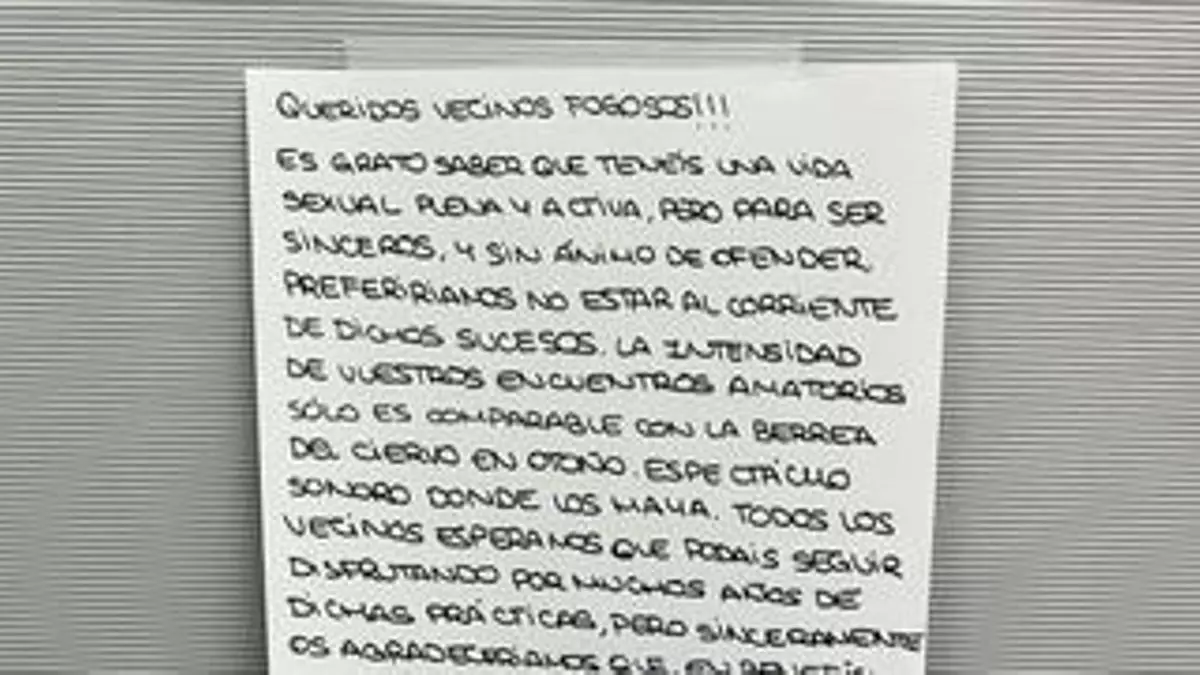 QUERIDOS VECINOS FOGOSOS!!!
ES GRATO SABER QUE TENÉIS UNA VIDA
SEXUAL PLENA Y ACTIVA, PERO PARA SER
SINCEROS, Y SIN ÁNIMO DE OFENDER,
PREFERIRIAMOS NO ESTAR AL CORRIENTE
DE DICHOS SUCESOS. LA INTENSIDAD
DE VUESTROS ENCUENTROS AMATORIOS
SÓLO ES COMPARABLE CON LA BERREA
DEL CIERVO EN OTOÑO. ESPECTÁCULO
SONORO DONDE LOS HAYA. TODOS LOS
VECINOS ESPERAMOS QUE PODAIS SEGUIR
DISFRUTANDO POR MUCHOS AÑOS DE
DICHAS PRÁCTICAS, PERO SINCERAMENTE
OS AGRADECERIAMOS QUE, EN